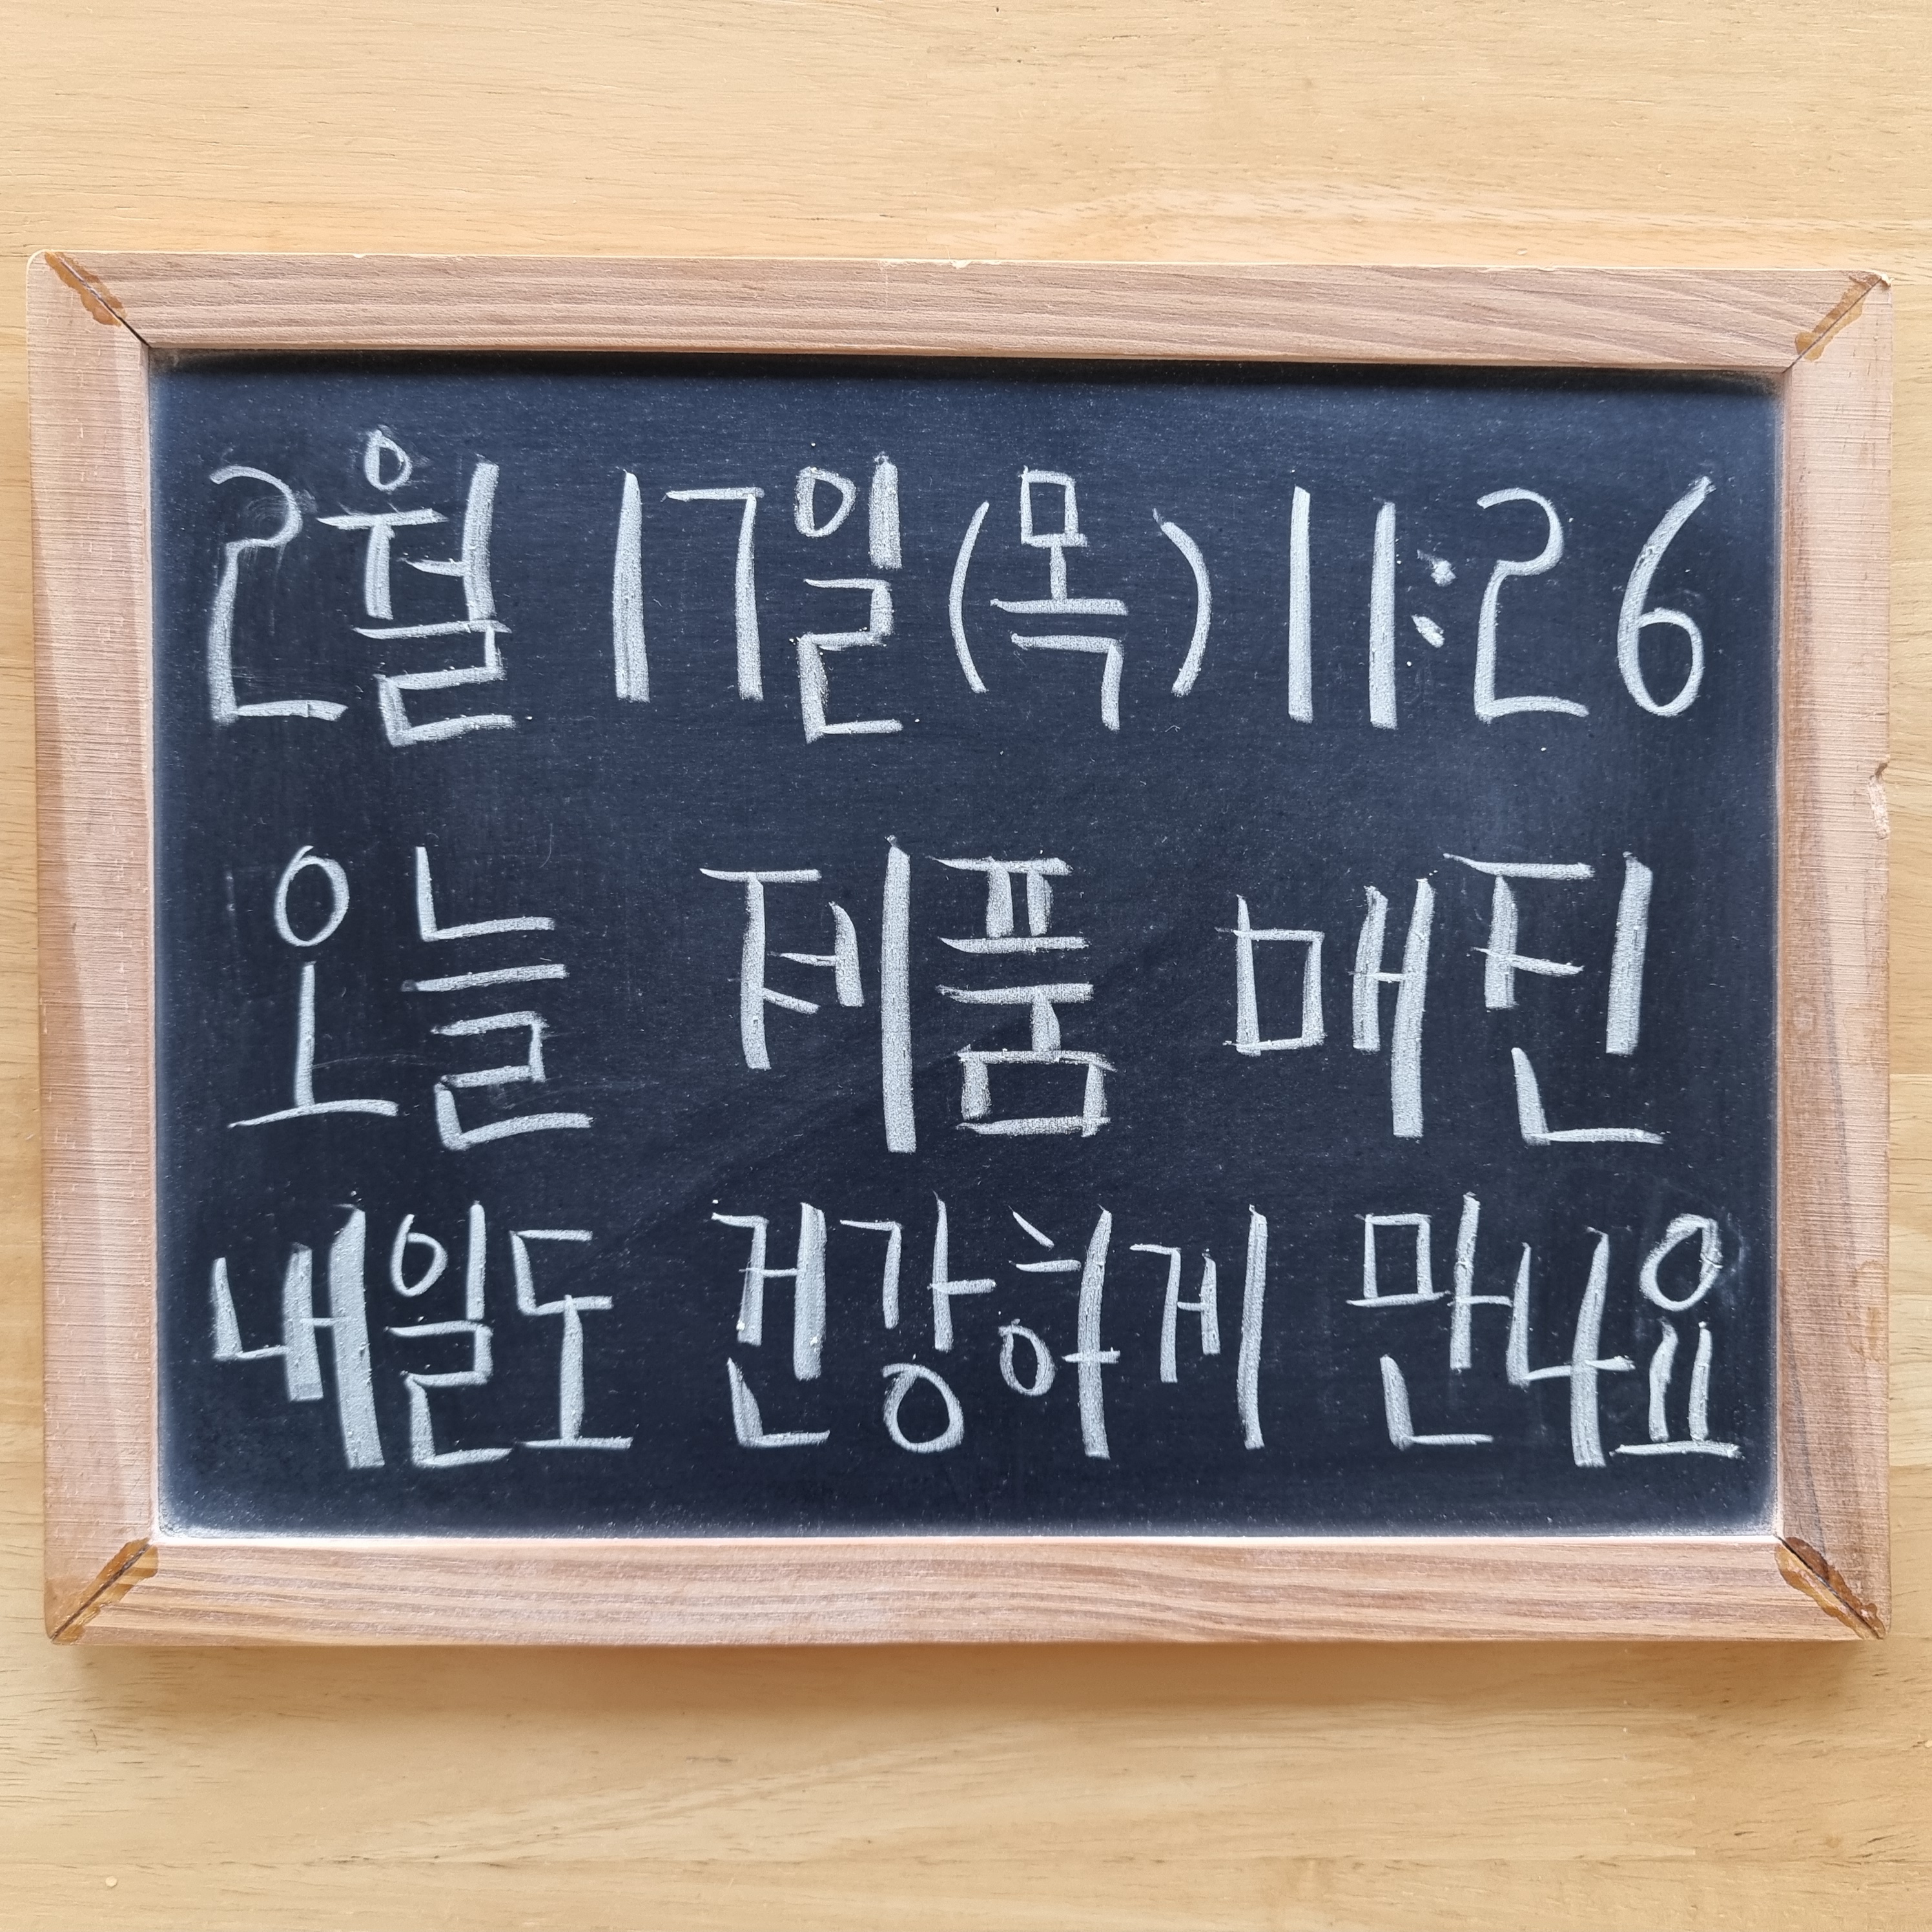 2월 17일(목) 11:26
오늘 제품 매진
내일도 건강하게 만나요